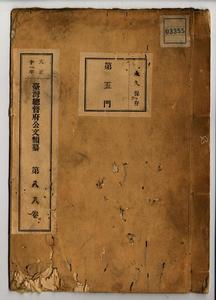 03355
永久保存
第五門
大正十一年
臺灣總督府公文類纂
第八八卷